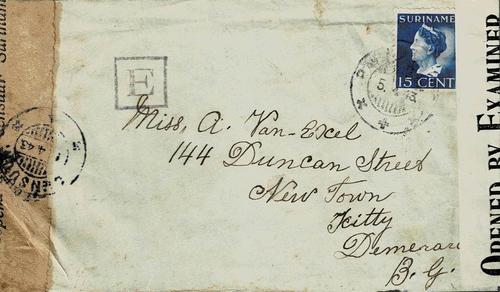 SURINAME
15 CENT
E
Miss, A. Van-Exel
144 Duncan Street
New Town
Kitty
Demerara
B. G.
OPENED BY EXAMINER
4.43